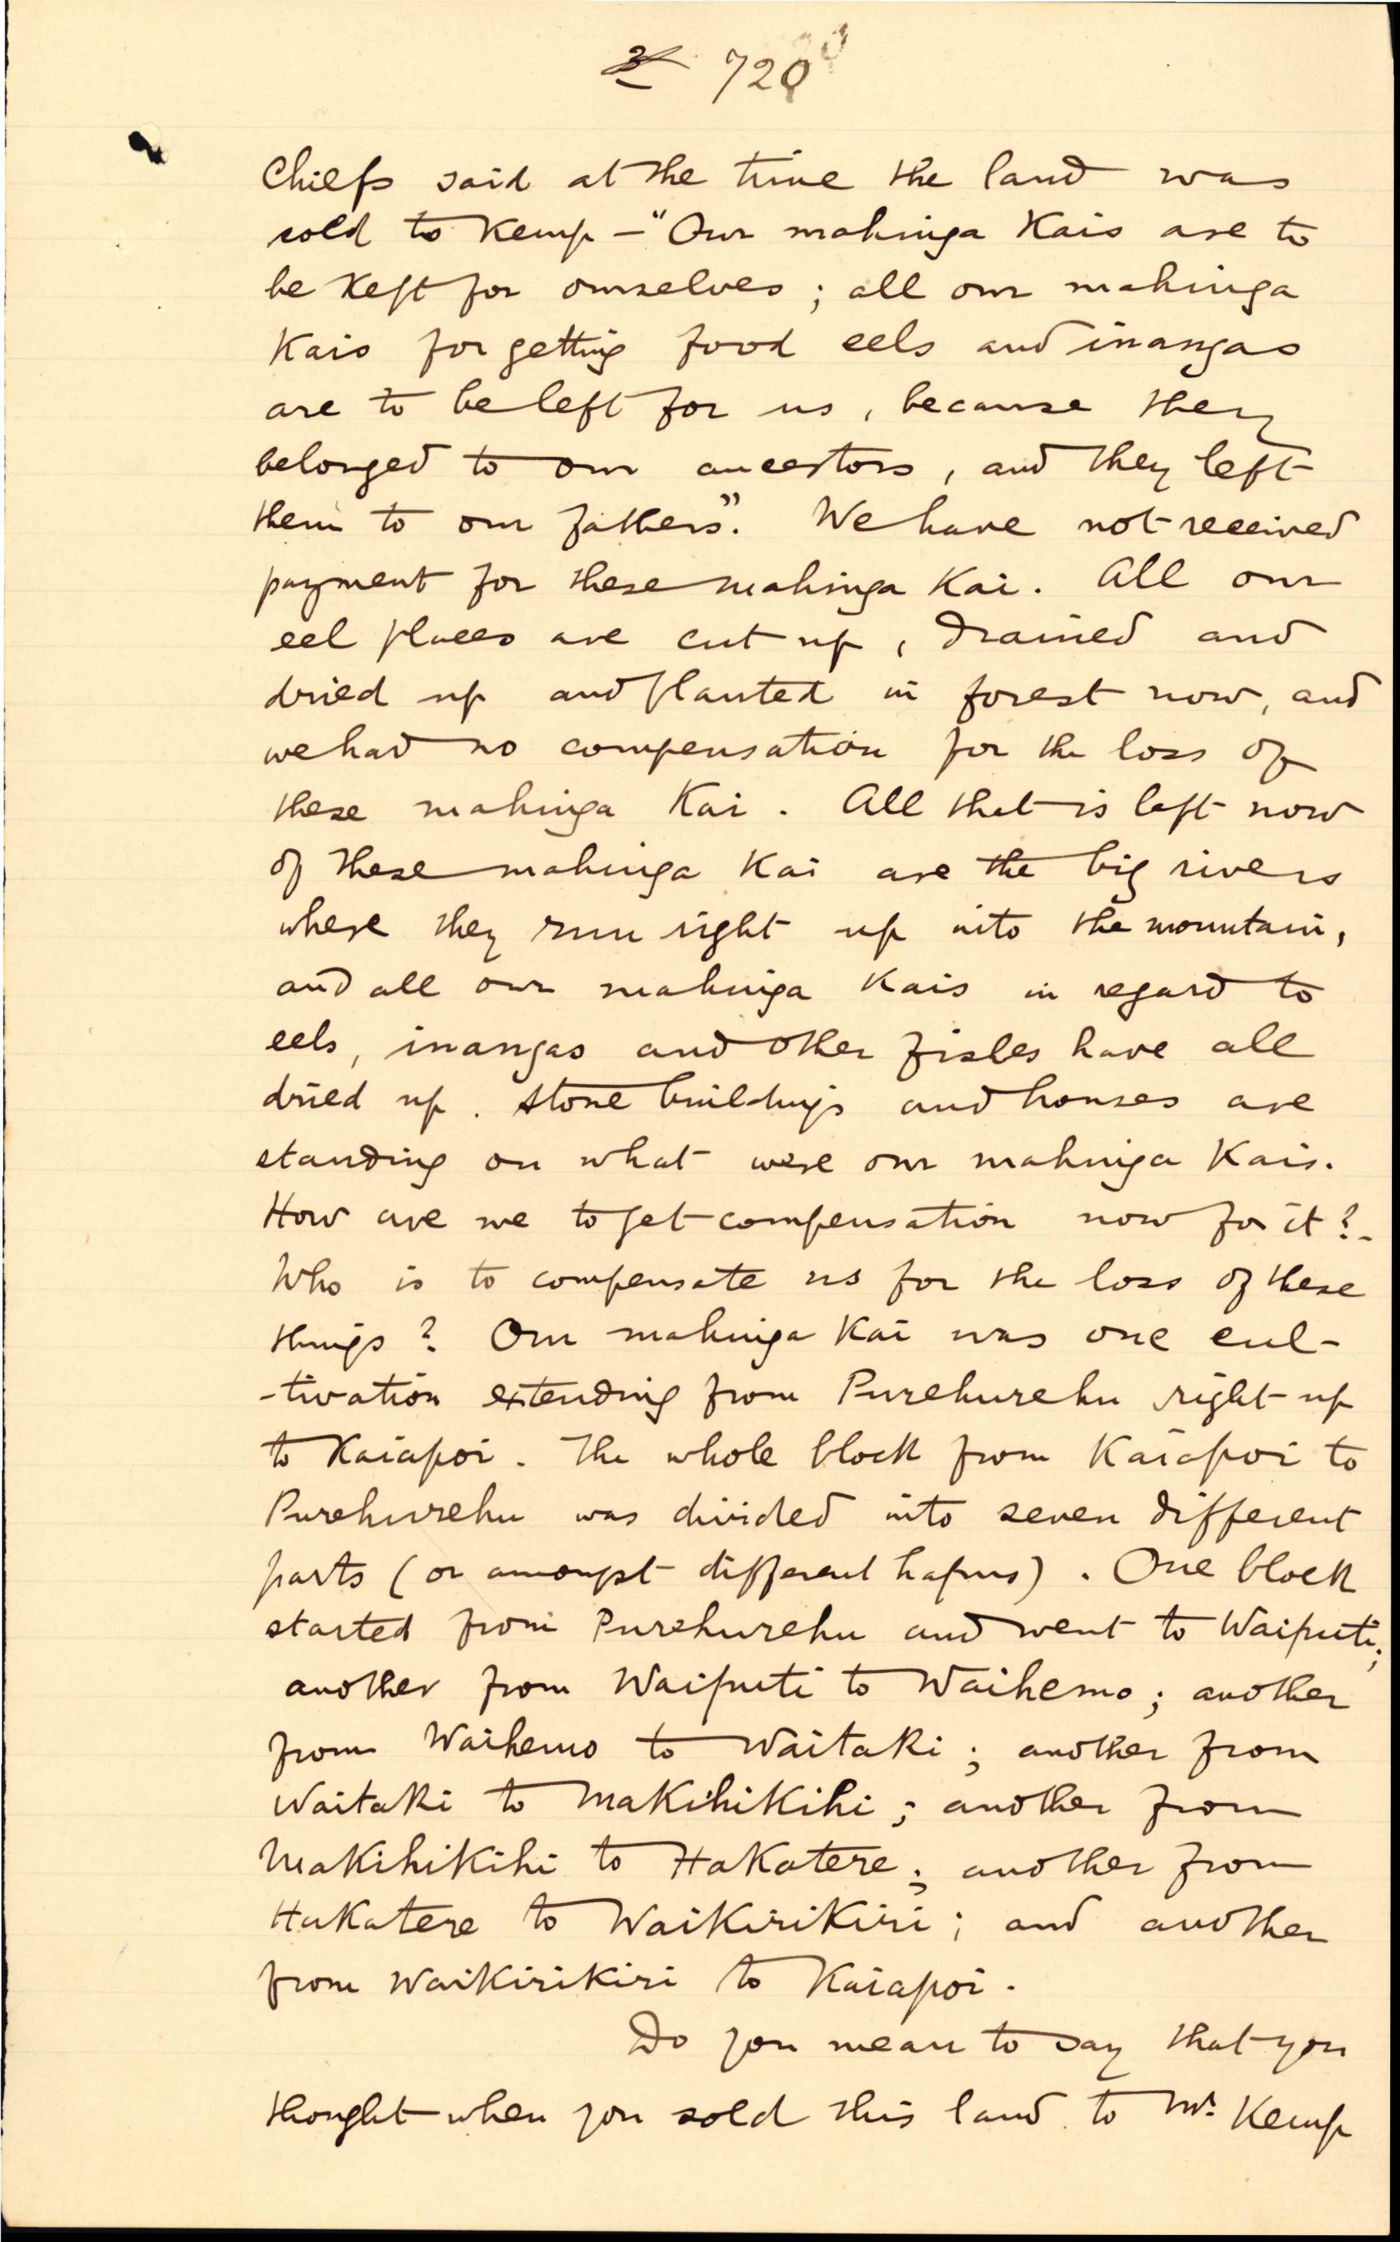 720
Chiefs said at the time the land was
sold to Kemp – "Our mahinga Kais are to
be kept for ourselves; all our mahinga
Kais for getting food eels and inangas
are to be left for us, because they
belonged to our ancestors, and they left
them to our fathers". We have not received
payment for these mahinga Kai. All our
eel places are cut up, drained and
dried up and planted in forest now, and
we had no compensation for the loss of
these mahinga Kai. All that is left now
of these mahinga Kai are the big rivers
where they run right up into the mountain,
and all our mahinga Kais in regard to
eels, inangas and other fishes have all
dried up. Stone buildings and houses are
standing on what were our mahinga Kais.
How are we to get compensation now for it? -
Who is to compensate us for the loss of these
things? Our mahinga Kai was one cul-
-tivation extending from Purehurehu right up
to Kaiapoi. The whole block from Kaiapoi to
Purehurehu was divided into seven different
parts (or amongst different hapus). One block
started from Purehurehu and went to Waiputi;
another from Waiputi to Waihemo; another
from Waihemo to Waitaki; another from
Waitaki to Makihikihi; another from
Makihikihi to Hakatere; another from
Hakatere to Waikirikiri; and another
from Waikirikiri to Kaiapoi.
Do you mean to say that you
thought when you sold this land to Mr. Kemp